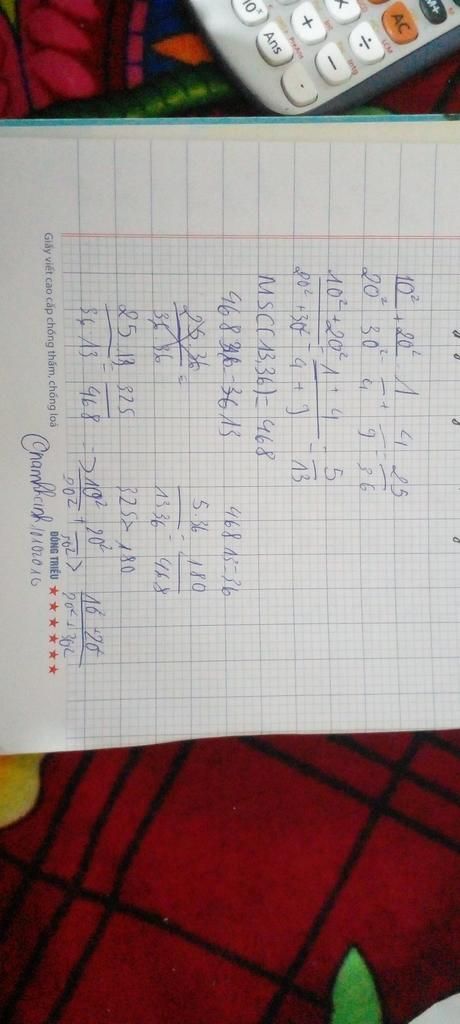 10ˣ
Ans
+
−
×
÷
AC
10²/20² + 20²/30² = 1/4 + 4/9 = 25/36
10²+20²/20²+30² = 1+4/4+9 = 5/13
MSC(13,36)=468
468:36=13
468:13=36
25.13/36.13 = 325/468
5.36/13.36 = 180/468
325>180
=> 10²/20² + 20²/30² > 10²+20²/20²+30²
Giấy viết cao cấp chống thấm, chống loá
ĐÔNG TRIỀU ★★★★★★★